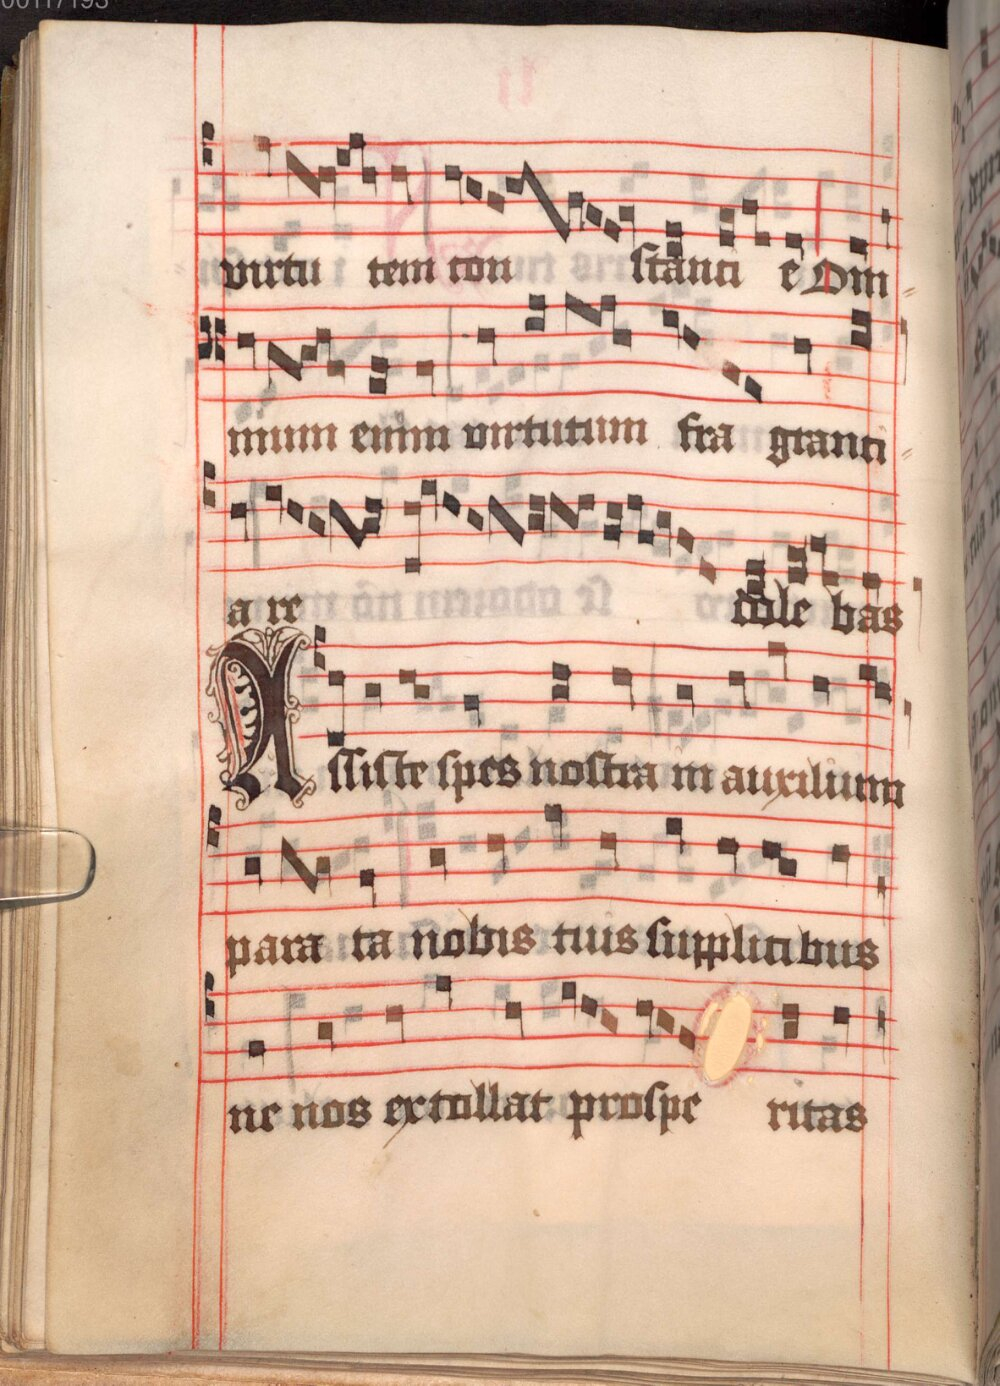 00117193
virtu tem con stanci e Om
mium enim virtutum fra granci
a re cole bas
Assiste spes nostra in auxilium
para ta nobis tuis supplicibus
ne nos extollat prospe ritas